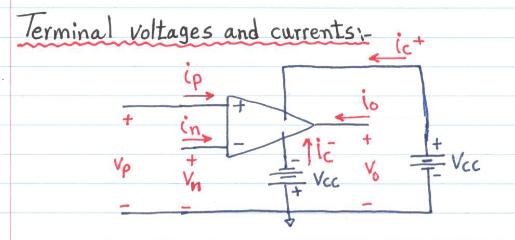 Terminal voltages and currents:-
ic+
ip
io
+
+
in
-
+
+
ic-
-
+
Vp
Vn
Vcc
Vo
Vcc
+
-
-
-
-